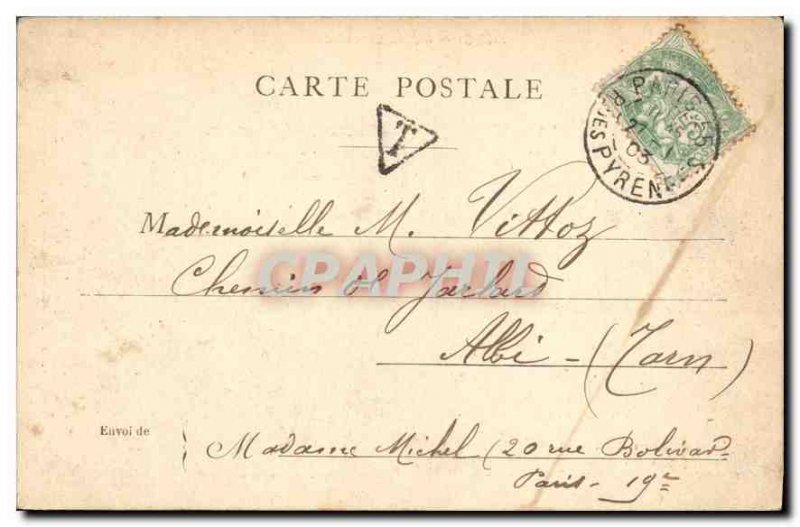 CARTE POSTALE
T
PARIS
R. DES PYRENEES
03
Mademoiselle M. Vittoz
CPARHTL
Chemin de Jarlard
Albi - (Tarn)
Envoi de
Madame Michel (20 rue Bolivar
Paris - 19e